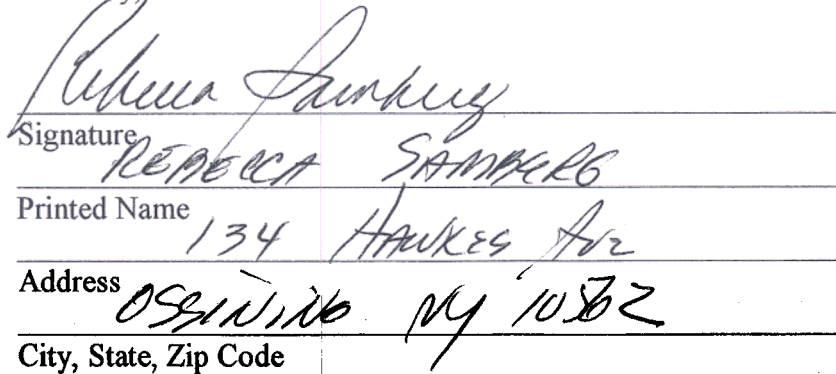 Rebecca Samberg
Signature
REBECCA SAMBERG
Printed Name
134 HAWKES AVE
Address
OSSINING NY 10562
City, State, Zip Code